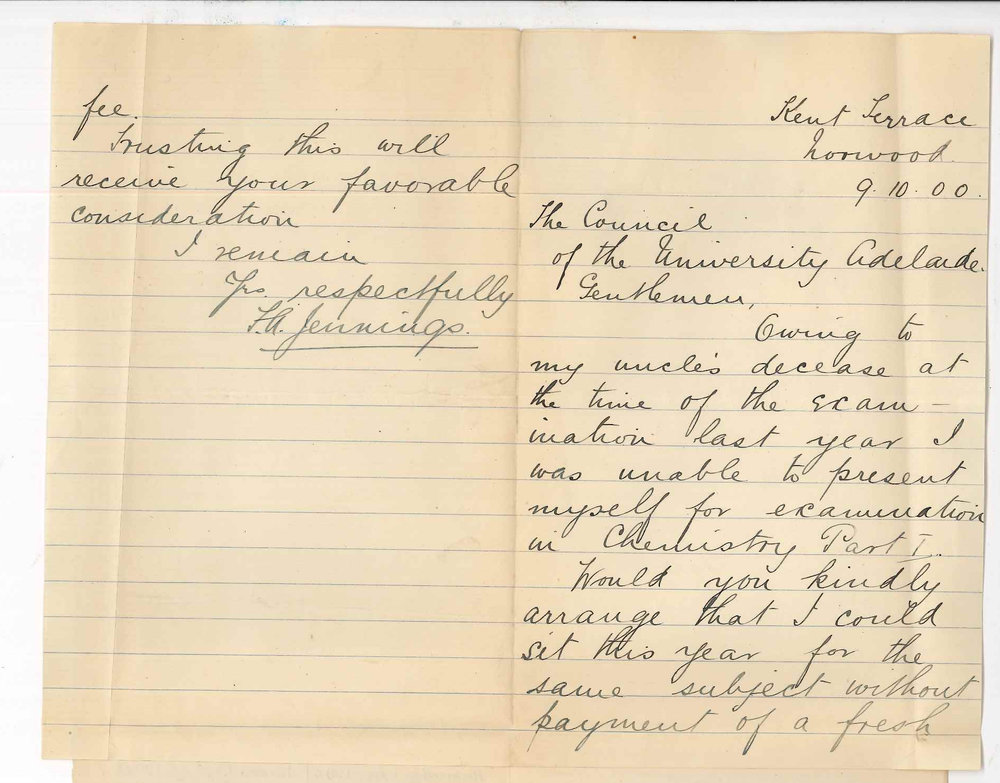 Kent Terrace
Norwood.
9.10.00.
The Council
of the University Adelaide.
Gentlemen,
Owing to
my uncle's decease at
the time of the exam-
ination last year I
was unable to present
myself for examination
in Chemistry Part I.
Would you kindly
arrange that I could
sit this year for the
same subject without
payment of a fresh
fee.
Trusting this will
receive your favorable
consideration
I remain
Yrs respectfully
Jennings.